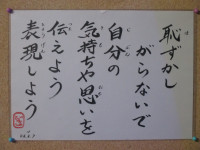 恥ずかし
がらないで
自分の
気持ちや思いを
伝えよう
表現しよう